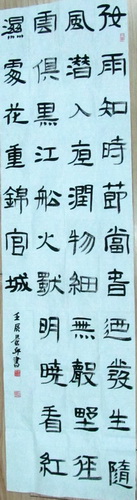 好雨知時節當春迺發生隨
風潛入夜潤物細無聲野徑
雲俱黑江船火獸明曉看紅
濕處花重錦官城